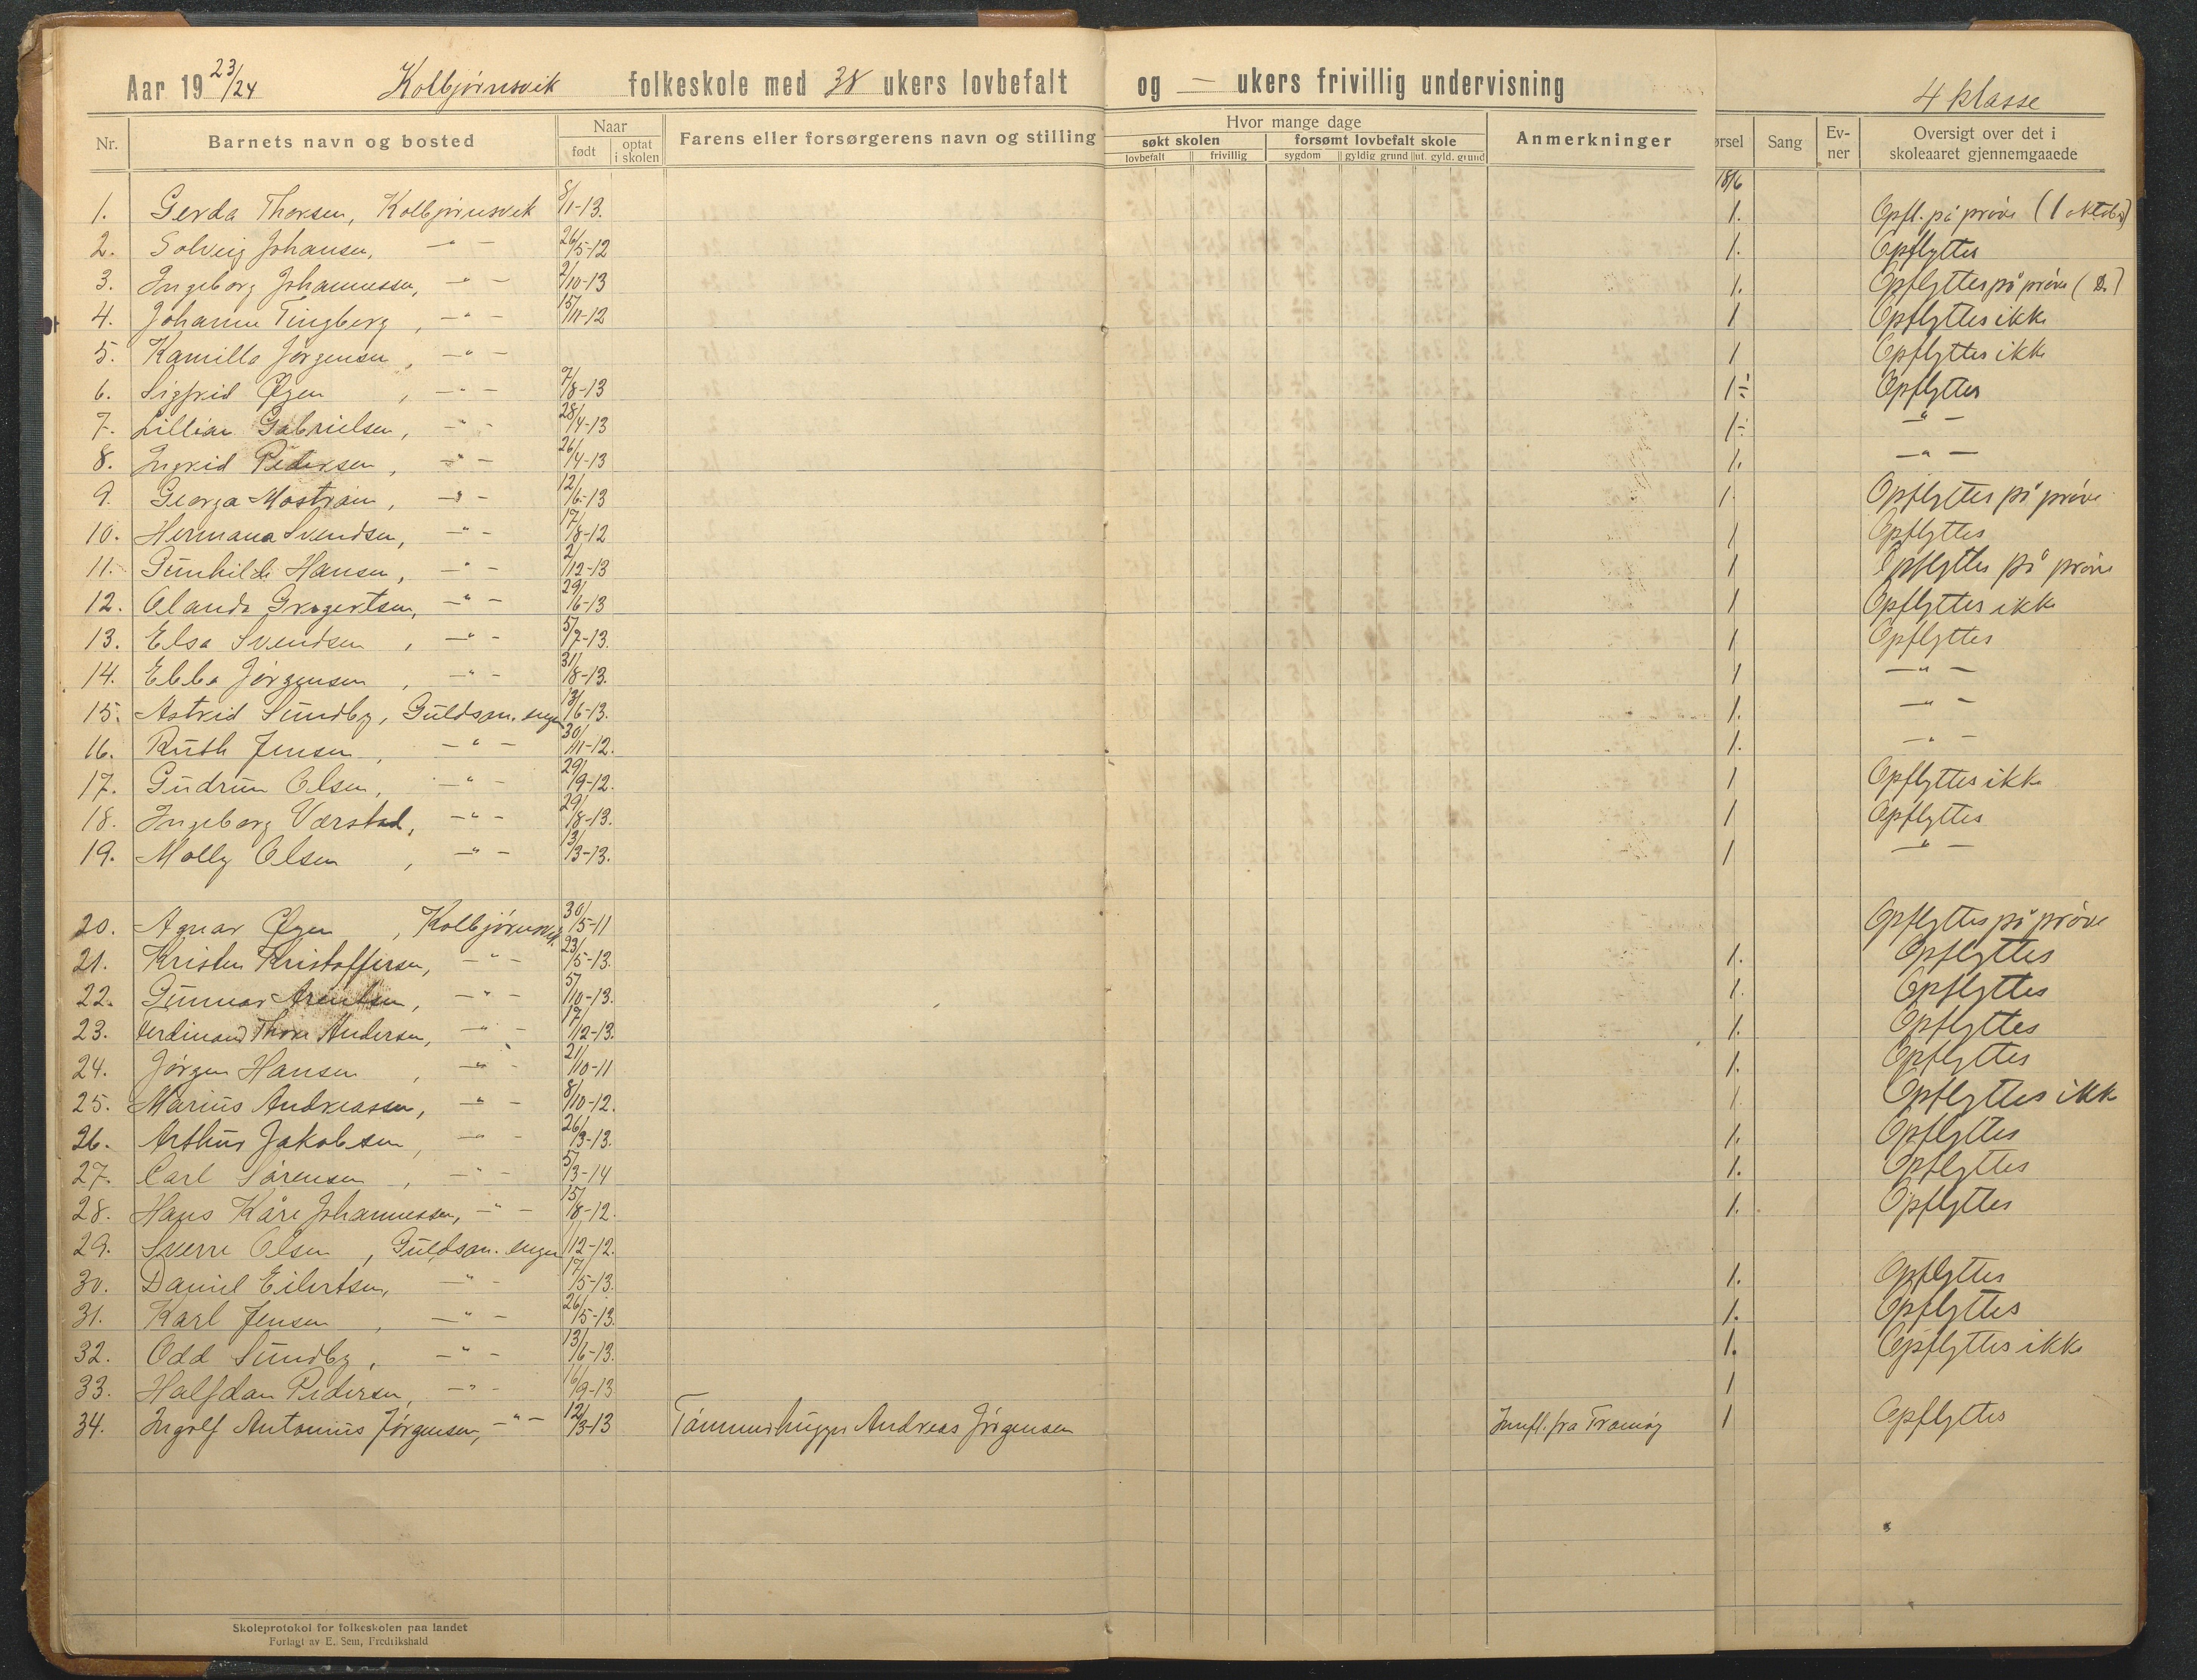 Aar 19 23/24 Kolbjørnsvik folkeskole med 38 ukers lovbefalt og — ukers frivillig undervisning
4 klasse
Nr. Barnets navn og bosted Naar født optat i skolen Farens eller forsørgerens navn og stilling Hvor mange dage søkt skolen lovbefalt frivillig forsømt lovbefalt skole sygdom gyldig grund ut. gyld. grund Anmerkninger ørsel Sang Ev-ner Oversigt over det i skoleaaret gjennemgaaede
18/6
1. Gerda Thorsen, Kolbjørnsvik 8/1-13. 1. Opfl. på prøve (1 oktober)
2. Solveig Johansen, —"— 26/5-12 1. Opflyttes
3. Ingeborg Johannessen, —"— 2/10-13 1. Opflyttes på prøve (D.)
4. Johanne Tingberg, —"— 15/11-12 1 Opflyttes ikke
5. Kamilla Jørgensen, —"— 1 Opflyttes ikke
6. Sigfrid Øgen, —"— 7/8-13 1÷ Opflyttes
7. Lillian Gabrielsen, —"— 28/4-13 1÷ —"—
8. Ingrid Pedersen, —"— 26/4-13 1. —"—
9. Georga Mostrøm, —"— 12/6-13 1 Opflyttes på prøve
10. Hermana Svendsen, —"— 17/8-12 1 Opflyttes
11. Gunhild Hansen, —"— 2/12-13 1 Opflyttes på prøve
12. Olanda Gregertsen, —"— 29/6-13 1 Opflyttes ikke
13. Elsa Svendsen, —"— 5/7-13. 1 Opflyttes
14. Ebba Jørgensen, —"— 31/8-13. 1 —"—
15. Astrid Sundby, Guldsm. engen 13/6-13. 1. —"—
16. Ruth Jensen, —"— 30/11-12. 1. —"—
17. Gudrun Olsen, —"— 29/9-12. 1 Opflyttes ikke
18. Ingeborg Værstad, —"— 29/8-13. 1 Opflyttes
19. Molly Olsen, —"— 13/3-13. 1 —"—
20. Agnar Øgen, Kolbjørnsvik 30/5-11 Opflyttes på prøve
21. Kristen Kristoffersen, —"— 23/5-13. 1. Opflyttes
22. Gunnar Arentsen, —"— 5/10-13. 1. Opflyttes
23. Ferdinand Thore Andersen, —"— 17/12-13. 1. Opflyttes
24. Jørgen Hansen, —"— 21/10-11 1. Opflyttes
25. Marius Andreassen, —"— 8/10-12. 1. Opflyttes ikke
26. Arthur Jakobsen, —"— 26/3-13. 1. Opflyttes
27. Carl Sørensen, —"— 5/3-14 1. Opflyttes
28. Hans Kåre Johannessen, —"— 15/8-12. 1. Opflyttes
29. Sverre Olsen, Guldsm. engen 1/12-12.
30. Daniel Eilertsen, —"— 17/5-13. 1. Opflyttes
31. Karl Jensen, —"— 26/5-13. 1. Opflyttes
32. Odd Sundby, —"— 13/6-13. 1. Opflyttes ikke
33. Halfdan Pedersen, —"— 16/9-13 1
34. Ingolf Antonius Jørgensen, —"— 12/3-13 Tømmerhugger Andreas Jørgensen Innfl. fra Tromøy 1 Opflyttes
Skoleprotokol for folkeskolen paa landet
Forlagt av E. Sem, Fredrikshald